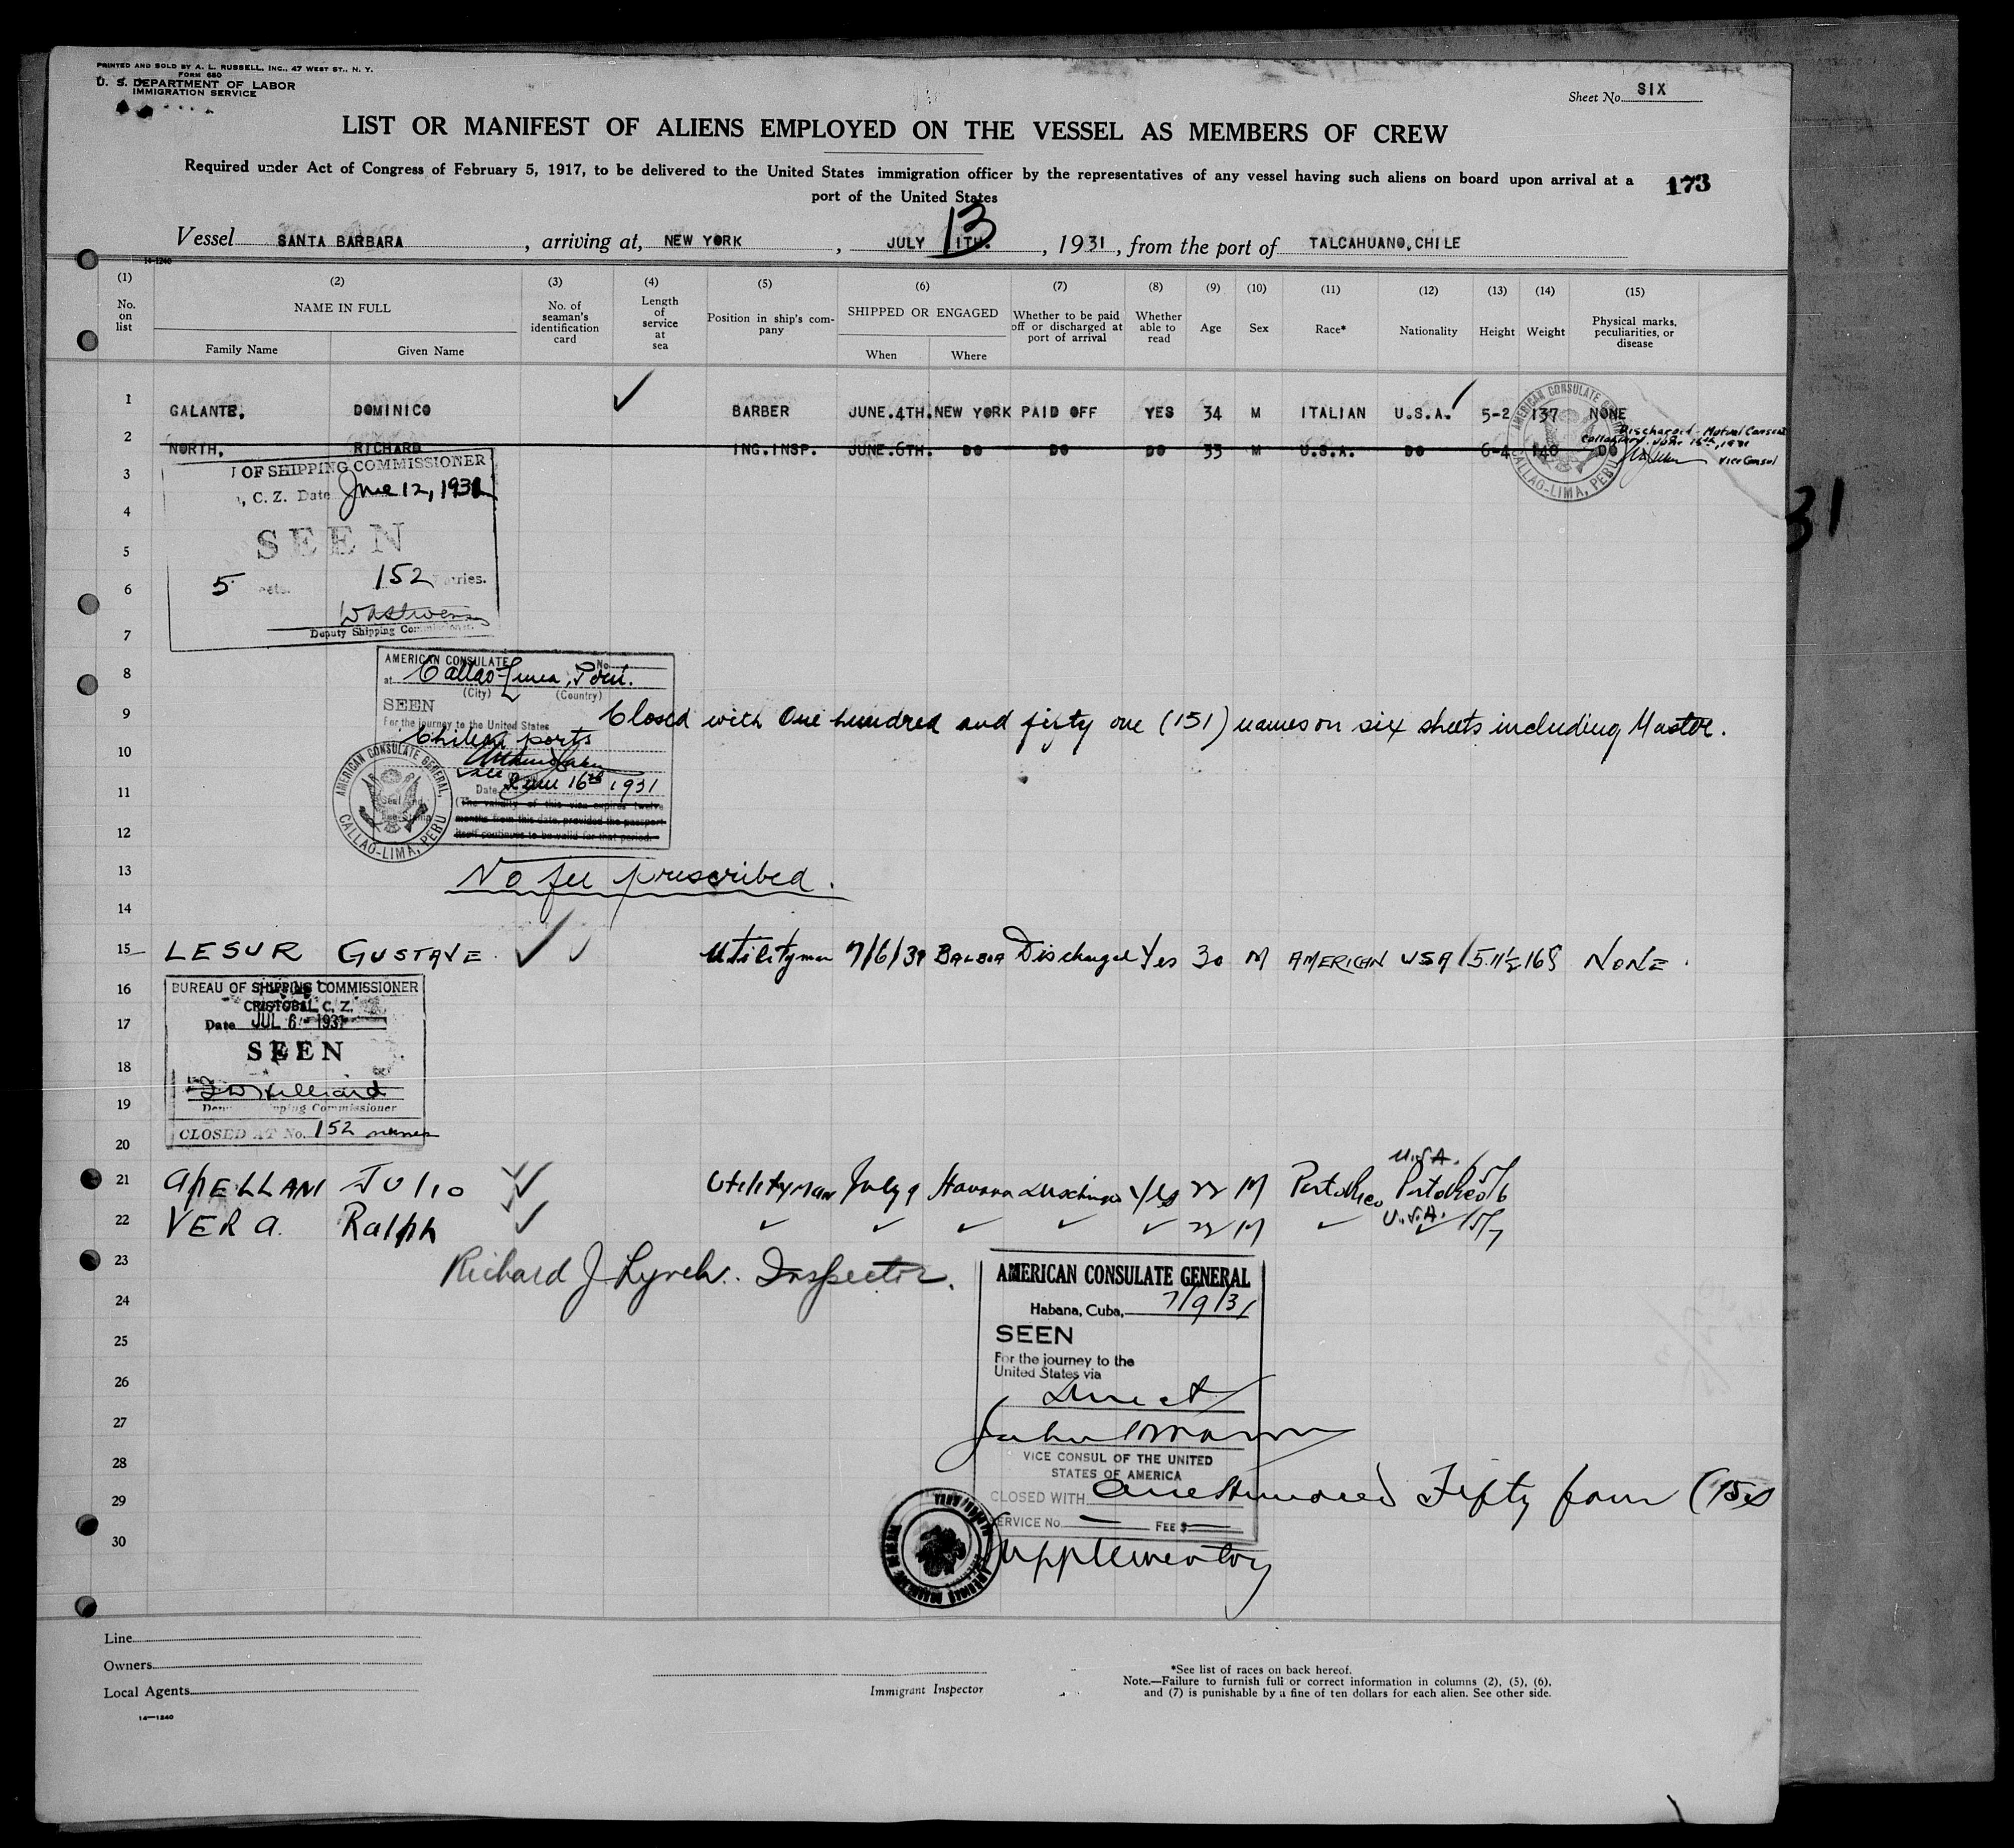 PRINTED AND SOLD BY A. L. RUSSELL, INC., 47 WEST ST., N. Y.
FORM 680
U. S. DEPARTMENT OF LABOR
IMMIGRATION SERVICE
Sheet No. SIX
LIST OR MANIFEST OF ALIENS EMPLOYED ON THE VESSEL AS MEMBERS OF CREW
Required under Act of Congress of February 5, 1917, to be delivered to the United States immigration officer by the representatives of any vessel having such aliens on board upon arrival at a
port of the United States
173
Vessel SANTA BARBARA, arriving at, NEW YORK, JULY 13 1TH., 1931, from the port of TALCAHUANO, CHILE
14-1240
(1) (2) (3) (4) (5) (6) (7) (8) (9) (10) (11) (12) (13) (14) (15)
No. on list
NAME IN FULL
Family Name Given Name
No. of seaman's identification card
Length of service at sea
Position in ship's company
SHIPPED OR ENGAGED
When Where
Whether to be paid off or discharged at port of arrival
Whether able to read
Age Sex Race* Nationality Height Weight
Physical marks, peculiarities, or disease
1 GALANTE, DOMINICO BARBER JUNE.4TH. NEW YORK PAID OFF YES 34 M ITALIAN U.S.A. 5-2 137 NONE
2 NORTH, RICHARD ING.INSP. JUNE.6TH. DO DO DO 33 M U.S.A. DO 6-4 140 DO
Discharged - Mutual Consent
June 16th, 1931
Vice Consul
AMERICAN CONSULATE GENERAL, CALLAO-LIMA, PERU
3
OF SHIPPING COMMISSIONER
, C. Z. Date June 12, 1931
4
SEEN
5
6
5 152
7
Deputy Shipping Commissioner.
AMERICAN CONSULATE No.
8
at Callao-Lima, Peru.
(City) (Country)
SEEN
For the journey to the United States
9 Closed with One hundred and fifty one (151) names on six sheets including Master.
10 Chilean ports
11
Date June 16th 1931
(The validity of this visa expires twelve
months from this date, provided the passport
itself continues to be valid for that period.
AMERICAN CONSULATE GENERAL, CALLAO-LIMA, PERU
12
13 No fee prescribed.
14
15 LESUR GUSTAVE Utilityman 7/6/31 BALBOA Discharged Yes 30 M AMERICAN USA 5.11½ 168 NONE.
16
BUREAU OF SHIPPING COMMISSIONER
CRISTOBAL C. Z.
17
Date JUL 6 - 1931
SEEN
18
19
Shipping Commissioner
CLOSED AT No. 152 names
20
U.S.A.
21 APELLANI JULIO Utilityman July 9 Havana Discharged Yes 22 M PortoRico PortoRico 5/6
U.S.A.
22 VERA. Ralph 22 M 5/7
23 Richard J Lynch. Inspector.
AMERICAN CONSULATE GENERAL
24
Habana, Cuba, 7/9/31
25
SEEN
For the journey to the
United States via
26
Direct
27
28
VICE CONSUL OF THE UNITED
STATES OF AMERICA
29
CLOSED WITH One Hundred Fifty four (154
30
SERVICE No. — FEE $ —
Supplementary
31
Line
Owners
Local Agents
14—1240
Immigrant Inspector
*See list of races on back hereof.
Note.—Failure to furnish full or correct information in columns (2), (5), (6),
and (7) is punishable by a fine of ten dollars for each alien. See other side.